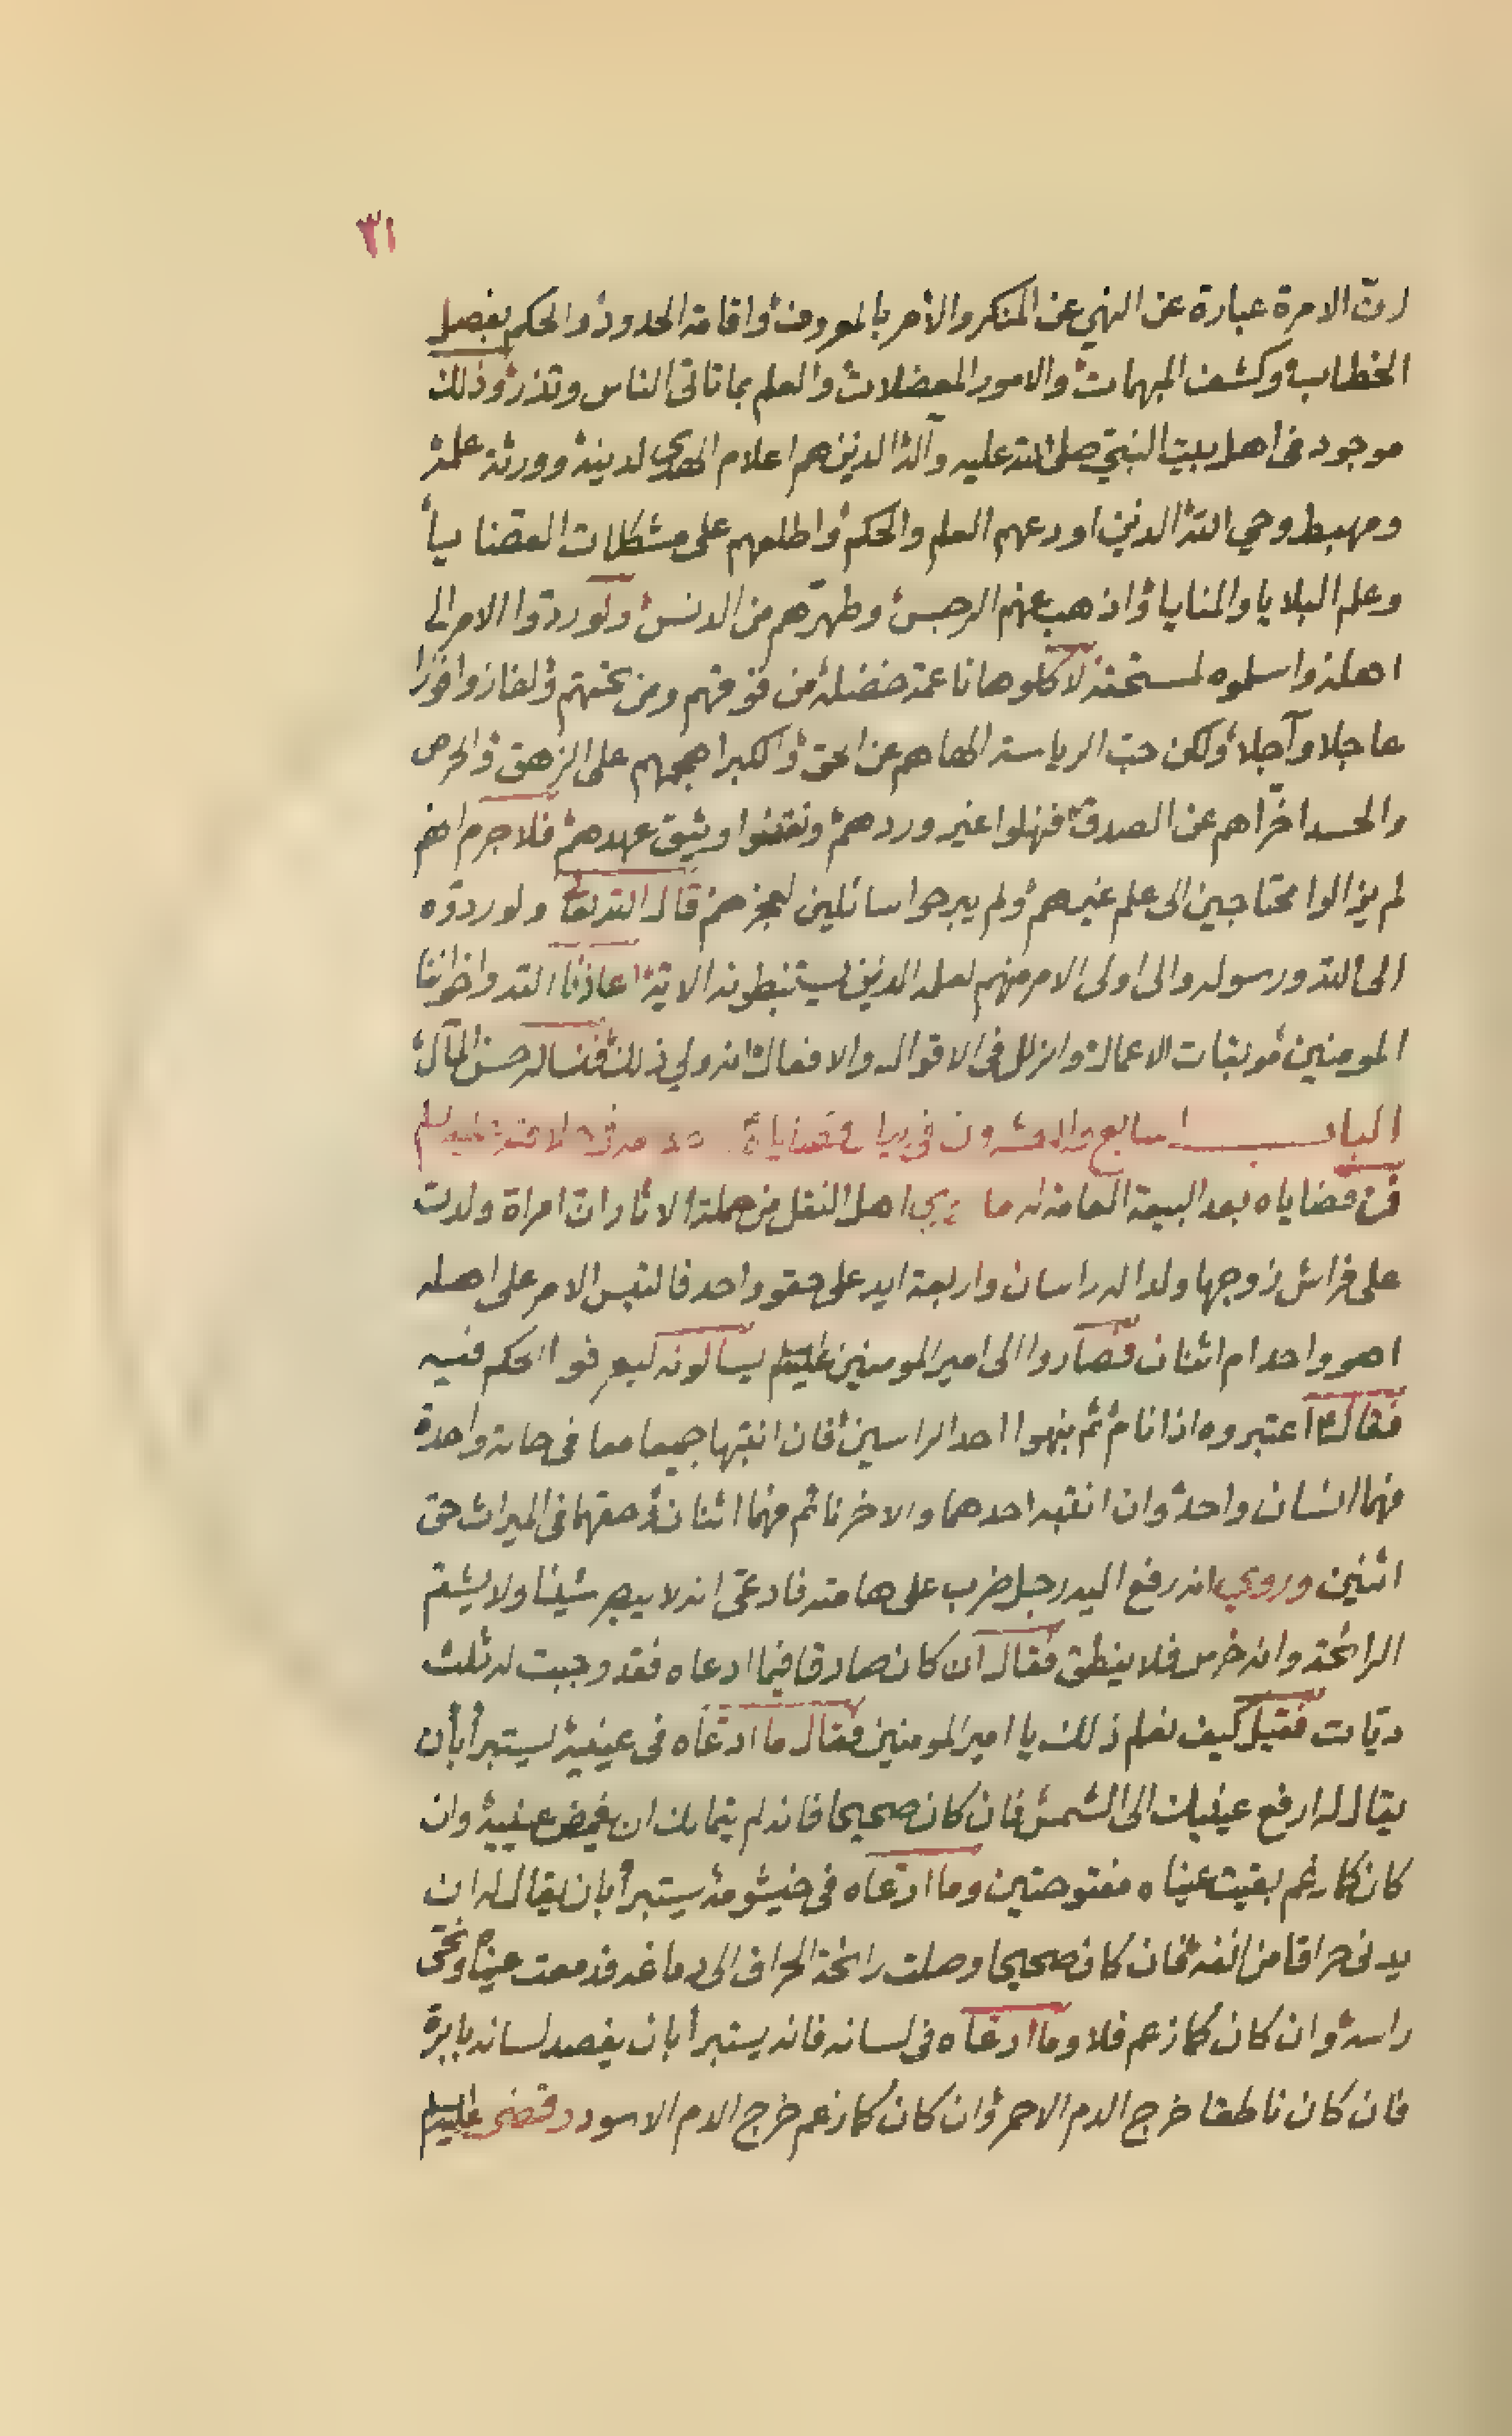 ٣١
انّ الامرة عبارة عن النهي عن المنكر والأمر بالمعروف واقامة الحدود والحكم بفصل
الخطاب وكشف المبهمات والامور المعضلات والعلم بما تاتي الناس وتذر وذلك
موجود في اهل بيت النبيّ صلى الله عليه وآله الذين هم اعلام الهدى لدينه وورثة علمه
ومهبط وحي الله الذين اودعهم العلم والحكم واطلعهم على مشكلات القضايا
وعلم البلايا والمنايا واذهب عنهم الرجس وطهرّهم من الدنس ولو ردّوا الامر الى
اهله واسلموه لمستحقه لاكلوها ناعمة خضلة من فوقهم ومن تحتهم ولفازوا فوزا
عاجلا وآجلا ولكن حبّ الرياسة الهاهم عن الحق والكبر اهجمهم على الزهق والحرص
والحسد اخّراهم عن الصدق فنهلوا غير وردهم ونقضوا وثيق عهدهم فلا جرم انهم
لم يزالوا محتاجين الى علم غيرهم ولم يبرحوا سائلين لعجزهم قال الله تعالى ولو ردّوه
الى الله ورسوله والى اولى الامر منهم لعلمه الذين يستنبطونه الاية اعاذنا الله واخواننا
المومنين موبقات الاعمال والزلل في الاقوال والافعال انه ولي ذلك فنساله حسن المآل
البـاب السابع والعشرون في بيان قضاياه في خلافته عليه السلم
فمن قضاياه بعد البيعة العامة له ما روي اهل النقل من حملة الاثار ان امراة ولدت
على فراش زوجها ولدا له راسان واربعة ايد على حقو واحد فالتبس الامر على اهله
اهو واحد ام اثنان فصاروا الى امير المومنين عليه السلم يسالونه ليعرفوا الحكم فيه
فقال اعتبروه اذا نام ثم نبهوا احد الراسين فان انتبها جميعا معا في حالة واحدة
فهما انسان واحد وان انتبه احدهما والاخر نائم فهما اثنان وحقهما في الميراث حق
اثنين وروي انه رفع اليه رجل ضرب على هامته فادعى انه لا يبصر شيئا ولا يشم
الرائحة وانه خرس فلا ينطق فقال ان كان صادقا فيما ادعاه فقد وجبت له ثلث
ديّات فقيل كيف نعلم ذلك يا امير المومنين فقال ما ادعاه في عينيه يستبرأ بأن
يقال له ارفع عينيك الى الشمس فان كان صحيحا فانه لم يتمالك ان يغمض عينيه وان
كان كما زعم بقيت عيناه مفتوحتين وما ادعاه في خيشومه يستبرأ بان يقال له ان
يدني حراقا من انفه فان كان صحيحا وصلت رائحة الحراق الى دماغه فدمعت عيناه ونحى
راسه وان كان كما زعم فلا وما ادعاه في لسانه فانه يستبرأ بان يفصد لسانه بابرة
فان كان ناطقا خرج الدم الاحمر وان كان كما زعم خرج الدم الاسود وقضى عليه السلم